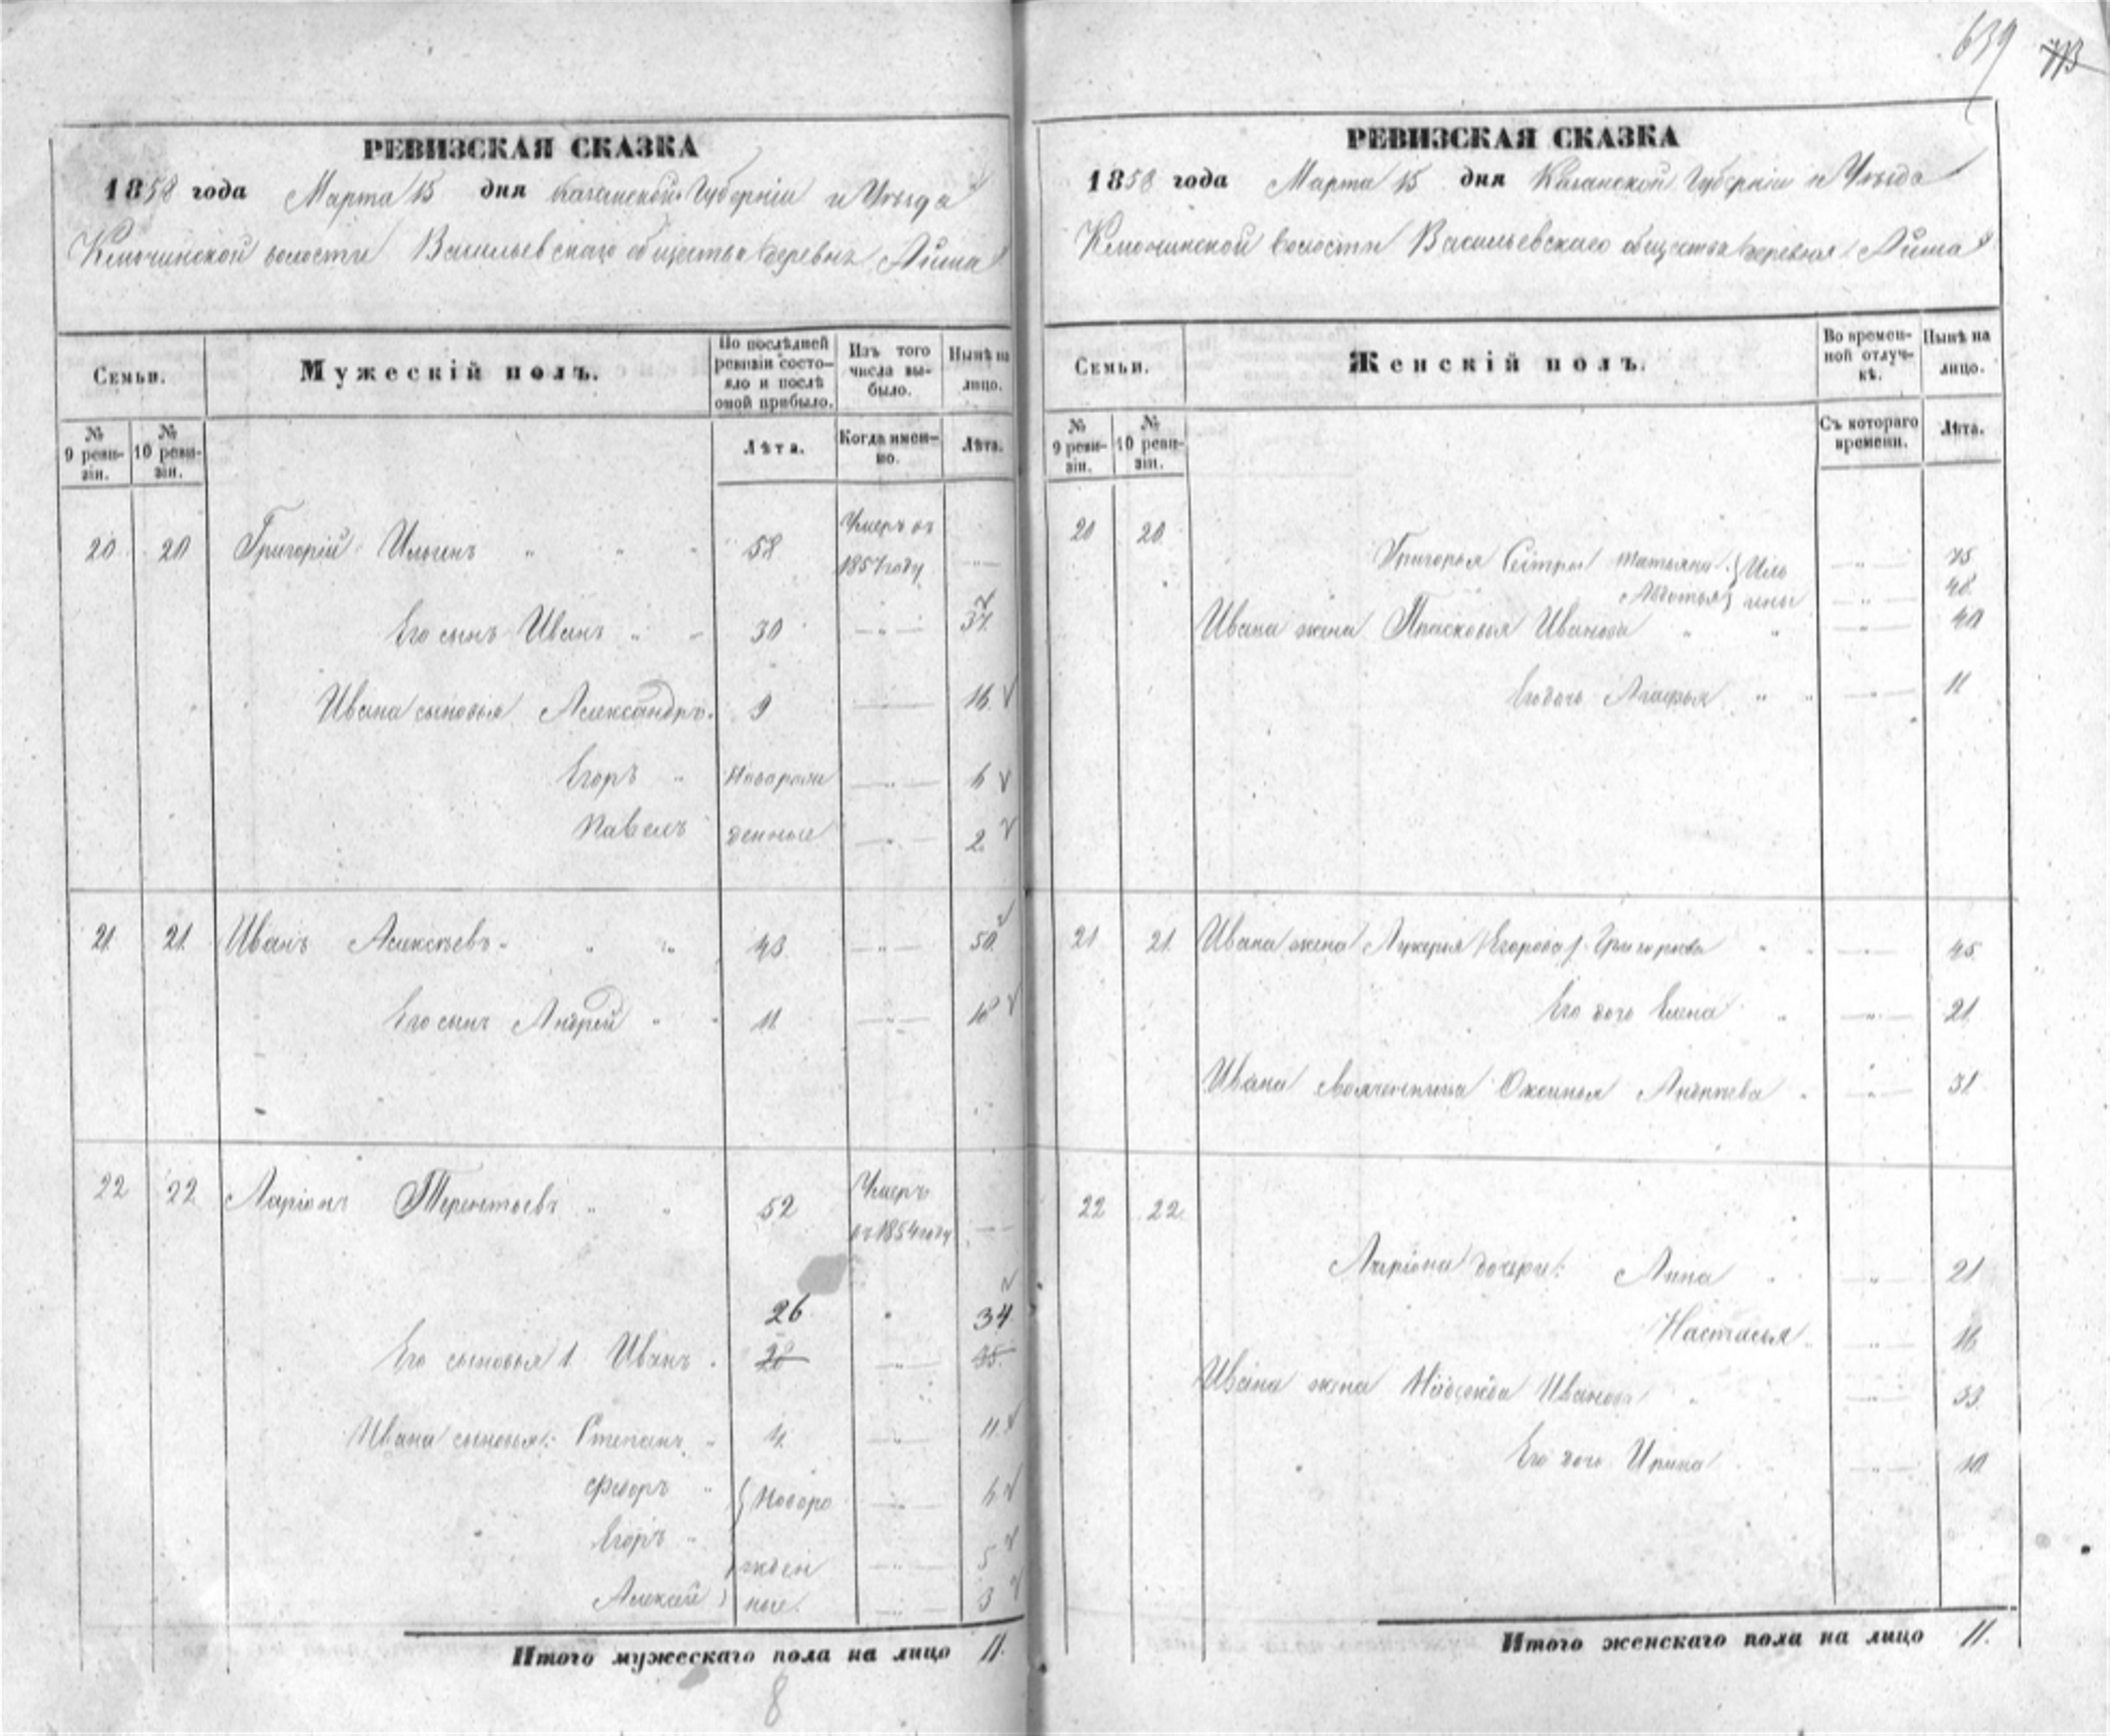 639
РЕВИЗСКАЯ СКАЗКА
1858 года Марта 15 дня Казанской Губерніи и Уѣзда
Ключинской волости Васильевскаго общества деревни Айша
Семьи.
Мужескій полъ.
По послѣдней ревизіи состояло и послѣ оной прибыло.
Изъ того числа выбыло.
Нынѣ на лицо.
№ 9 ревизіи.
№ 10 ревизіи.
Лѣта.
Когда именно.
Лѣта.
20 20 Григорій Ильинъ 58 Умеръ въ 1857 году
Его сынъ Иванъ 30 37
Ивана сыновья Александръ 9 16
Егоръ Новорож 6
Павелъ денные 2
21 21 Иванъ Алексѣевъ 43 50
Его сынъ Андрей 11 18
22 22 Ларіонъ Терентьевъ 52 Умеръ въ 1854 году
26 34
Его сыновья 1. Иванъ 28 35
Ивана сыновья: Степанъ 4 11
Федоръ Новоро 6
Егоръ жден 5
Алексей ные. 3
Итого мужескаго пола на лицо 11.
8
РЕВИЗСКАЯ СКАЗКА
1858 года Марта 15 дня Казанской Губерніи и Уѣзда
Ключинской волости Васильевскаго общества деревня Айша
Семьи.
Женскій полъ.
Во временной отлучкѣ.
Нынѣ на лицо.
№ 9 ревизіи.
№ 10 ревизіи.
Съ котораго времени.
Лѣта.
20 20 Григорья Сестры Татьяна Иль 45
Авдотья ины 48
Ивана жена Прасковья Иванова 40
Его дочь Агафья 11
21 21 Ивана жена Лукерья Егорова Григорьева 45
Его дочь Елена 21
Ивана Оксинья Андреева 31
22 22
Ларіона дочери: Анна 21
Настасья 16
Ивана жена Надежда Иванова 33
Его дочь Ирина 10
Итого женскаго пола на лицо 11.